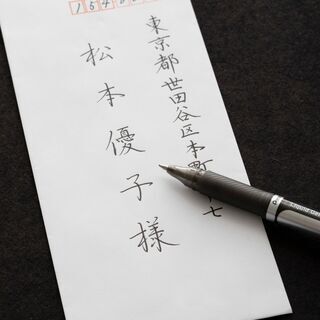 154
東京都世田谷区本町
七
松本優子様